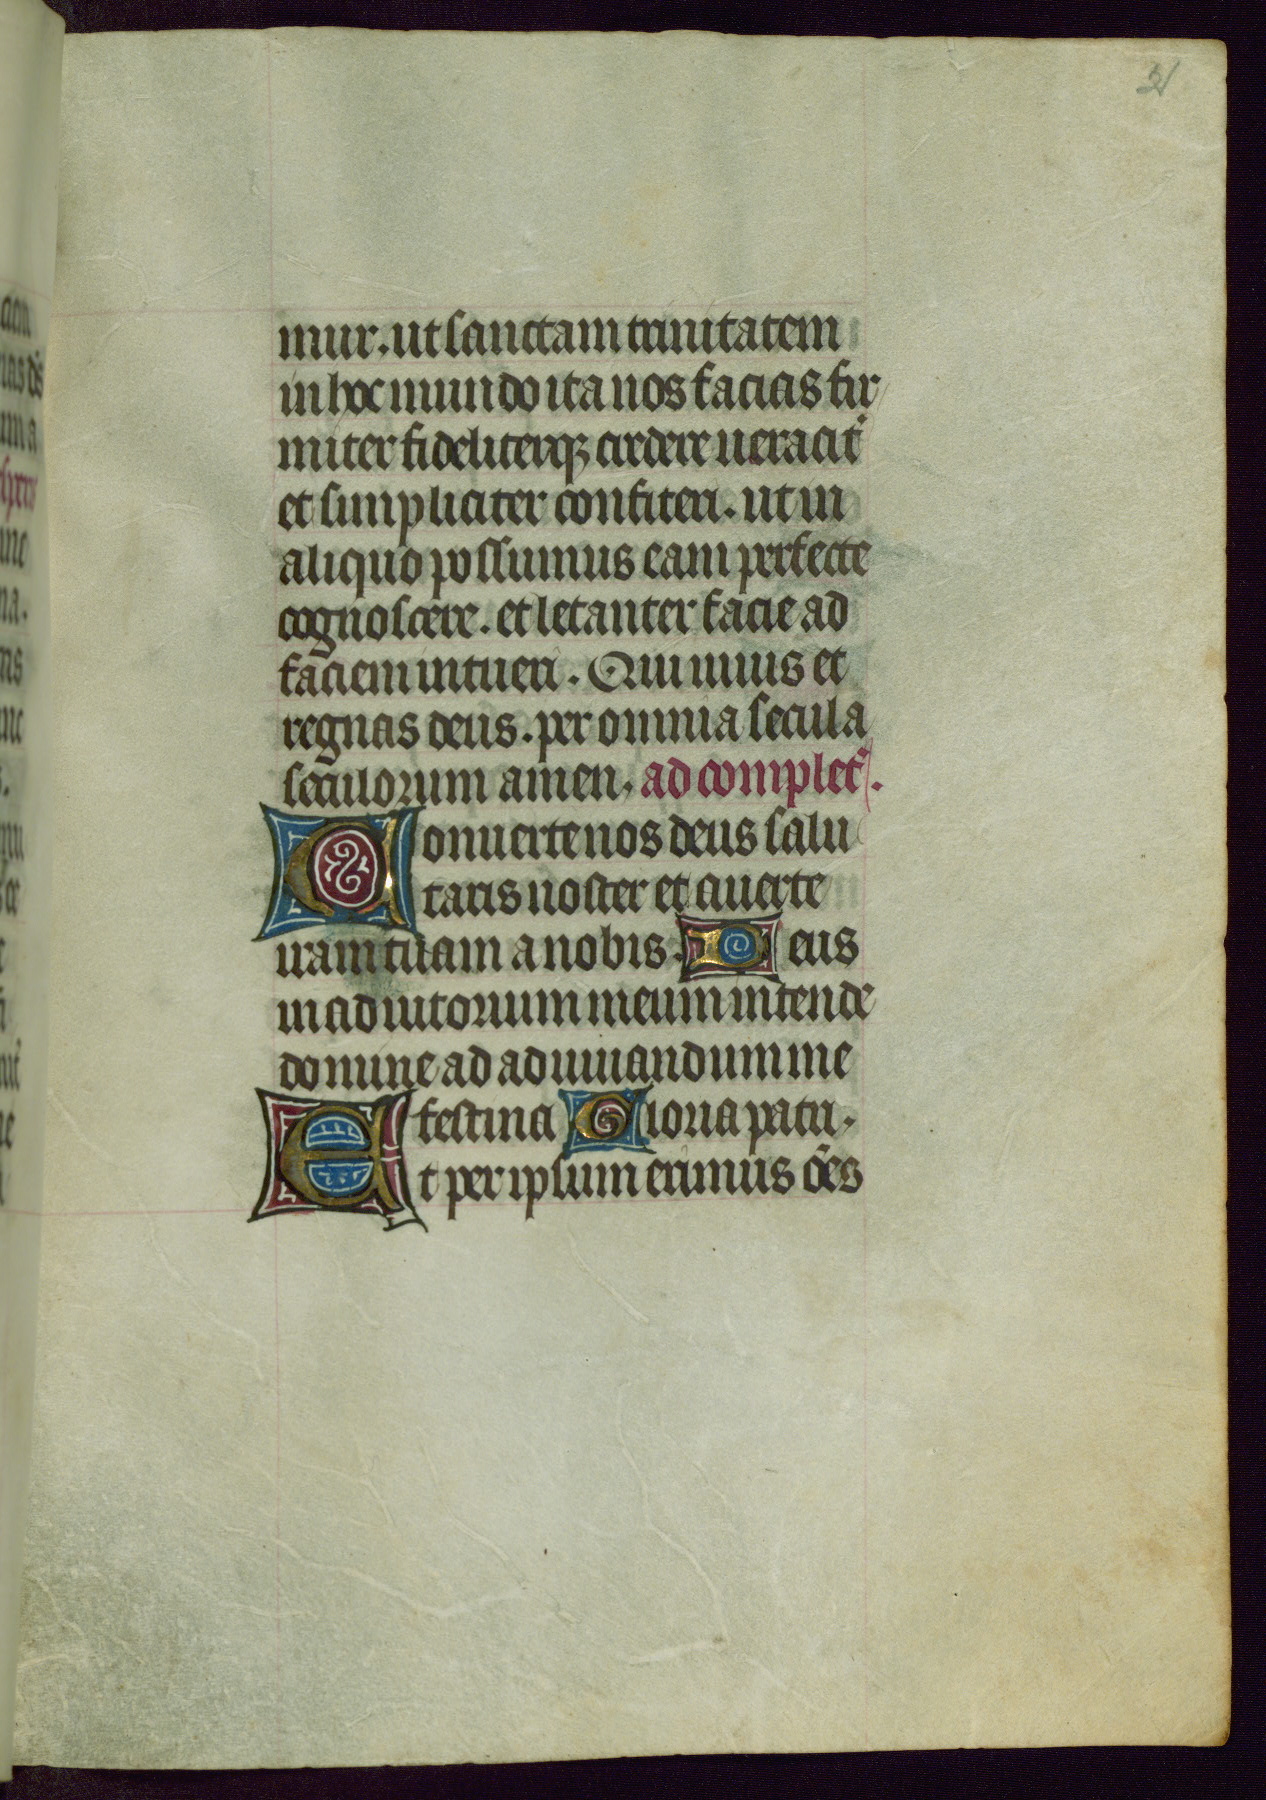 21
mur. ut sanctam trinitatem
in hoc mundo ita nos facias fir
miter fideliterqꝫ credere ueracit᷑
et simpliciter confiteri. ut in
aliquo possumus eam perfecte
cognoscere. et letanter facie ad
faciem intueri. Qui uiuis et
regnas deus. per omnia secula
seculorum amen, ad complet᷑.
Conuerte nos deus salu
taris noster et auerte
iram tuam a nobis. Deus
in adiutorium meum intende
domine ad adiuuandum me
festina Gloria patri.
Et per ipsum erimus oēs